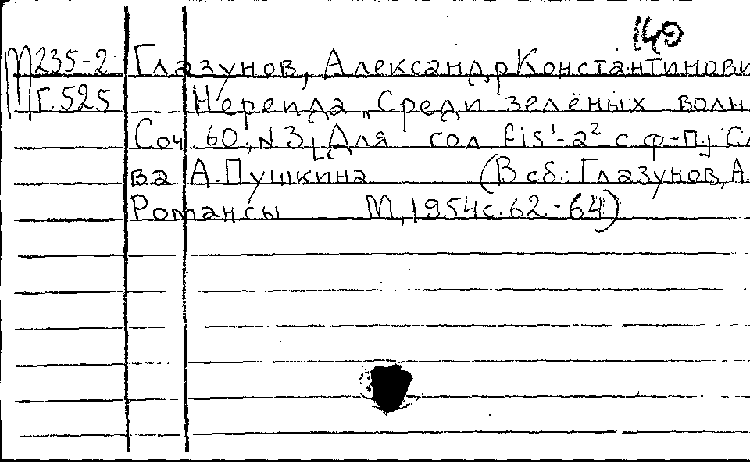 140
М235-2 Глазунов, Александр Константинови
Г.525 Нереида „Среди зелёных волн
Соч. 60, N3. [Для сол fis¹-a² с ф-п.] Сл
ва А. Пушкина (В сб.: Глазунов, А.
Романсы М., 1954 с. 62-64)